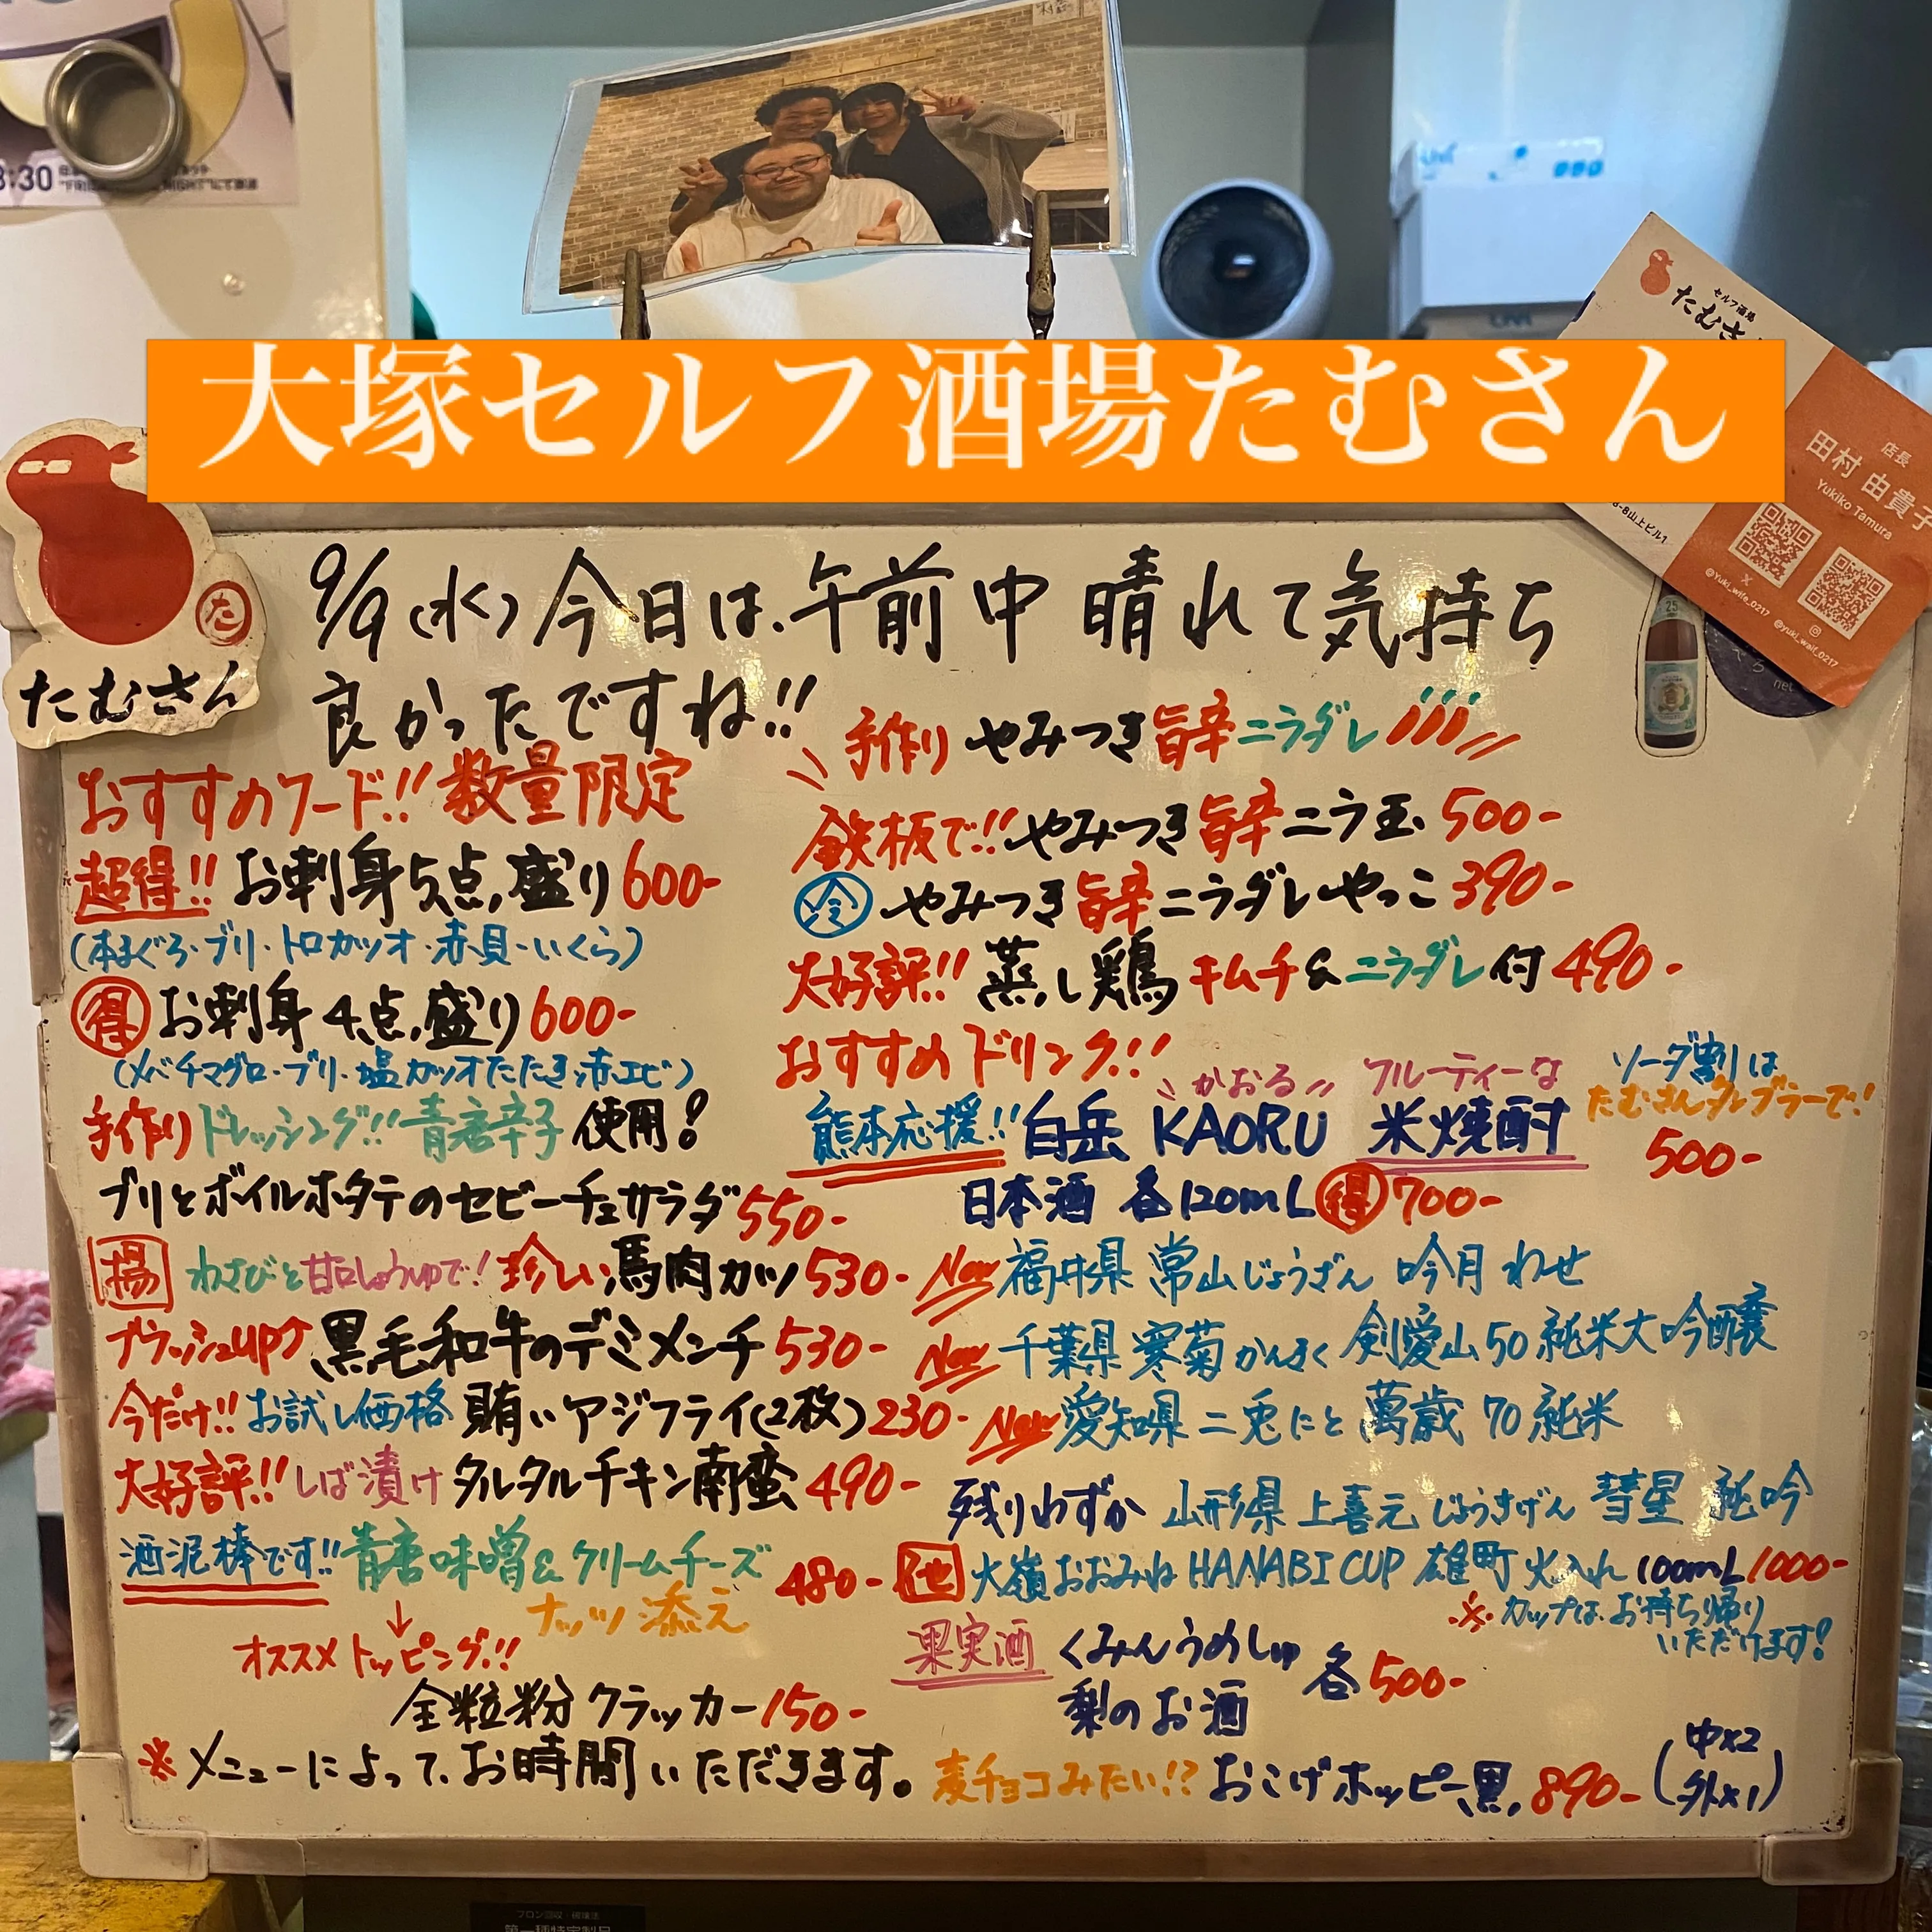 大塚セルフ酒場たむさん
セルフ酒場
たむさ
店長
田村 由貴子
Yukiko Tamura
@Yuki_wife_0217
@yuki_waif_0217
3:30
た
たむさん
25
net
9/9(水)今日は、午前中 晴れて気持ち
良かったですね!!
おすすめフード!! 数量限定
超得!! お刺身5点盛り 600-
(本まぐろ・ブリ・トロカツオ・赤貝・いくら)
得 お刺身 4点盛り 600-
(メバチマグロ・ブリ・塩カツオたたき・赤エビ)
手作りドレッシング!! 青唐辛子 使用!
ブリとボイルホタテのセビーチェサラダ 550-
揚 わさびと甘口しょうゆで! 珍しい馬肉カツ 530-
ブラッシュup↑ 黒毛和牛のデミメンチ 530-
今だけ!! お試し価格 賄いアジフライ(2枚) 230-
大好評!! しば漬け タルタルチキン南蛮 490-
酒泥棒です!! 青唐味噌&クリームチーズ
ナッツ添え 480-
↓
オススメトッピング!!
全粒粉クラッカー 150-
※メニューによって、お時間いただきます。
手作り やみつき旨辛ニラダレ
鉄板で!! やみつき旨辛ニラ玉 500-
冷 やみつき旨辛ニラダレやっこ 390-
大好評!! 蒸し鶏 キムチ&ニラダレ付 490-
おすすめドリンク!!
かおる フルーティーな
熊本応援!! 白岳 KAORU 米焼酎
ソーダ割は
たむさんタンブラーで!
500-
日本酒 各120mL 得 700-
New 福井県 常山 じょうざん 吟月 わせ
New 千葉県 寒菊 かんきく 剣愛山50 純米大吟醸
New 愛知県 二兎 にと 萬歳 70 純米
残りわずか 山形県 上喜元 じょうきげん 彗星 純吟
他 大嶺 おおみね HANABI CUP 雄町 火入れ 100mL 1000-
※カップは、お持ち帰り
いただけます!
果実酒 くみんうめしゅ
梨のお酒 各500-
麦チョコみたい!? おこげホッピー黒 890- (中x2
外x1)